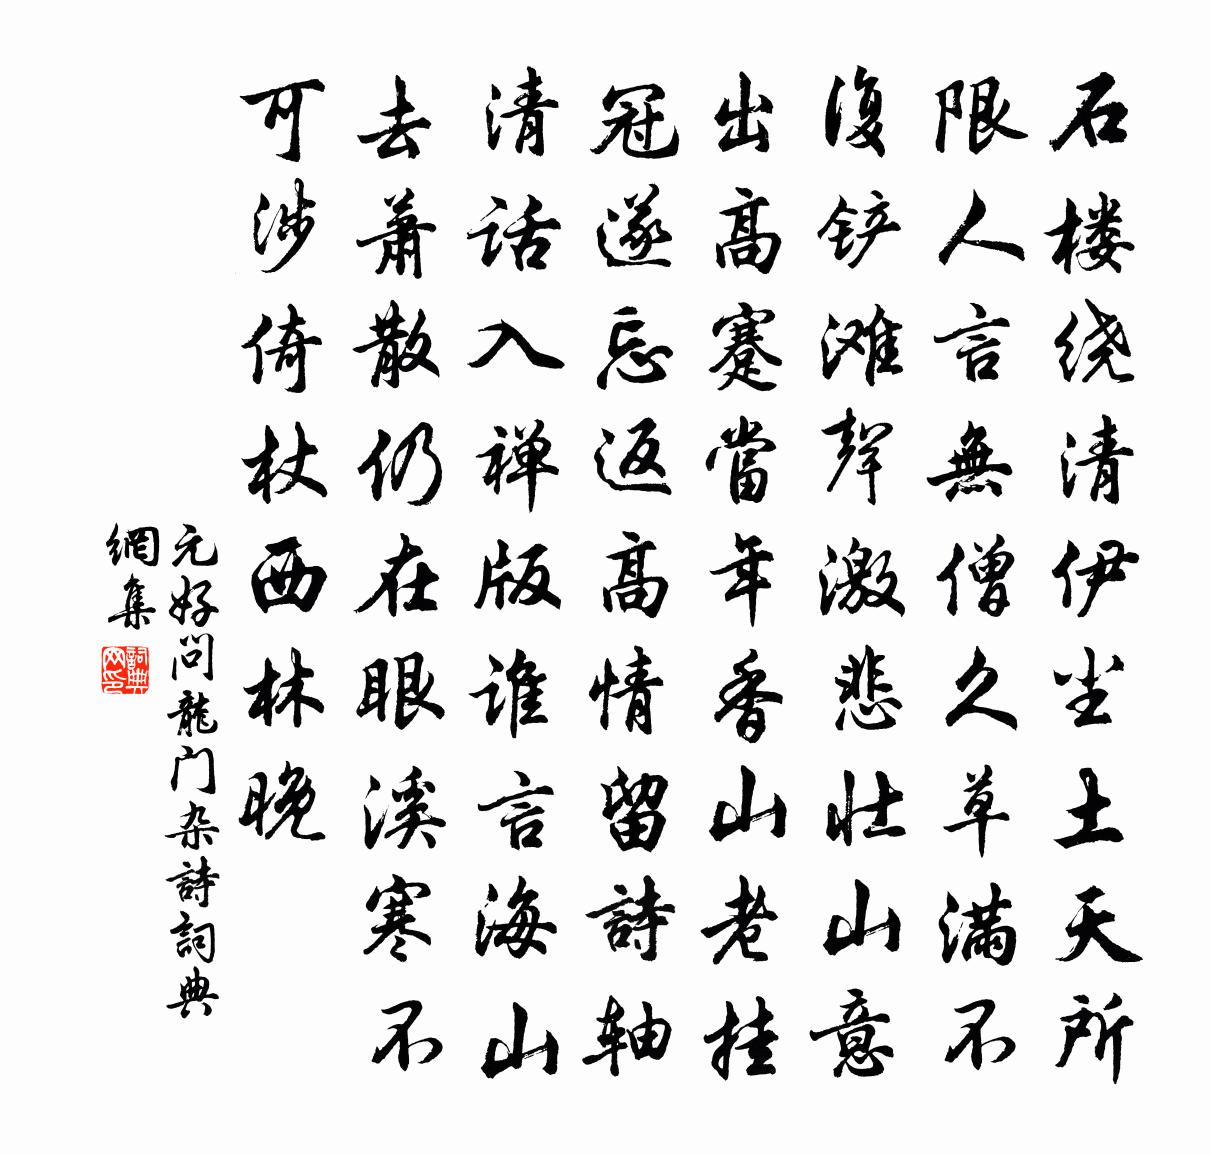 石楼绕清伊尘土天所
限人言無僧久草满不
復铲滩聲激悲壮山意
出高蹇當年香山老挂
冠遂忘返高情留詩轴
清话入禅版谁言海山
去萧散仍在眼溪寒不
可涉倚杖西林晚
元好问龍门杂詩詞典
網集
詞典
网印